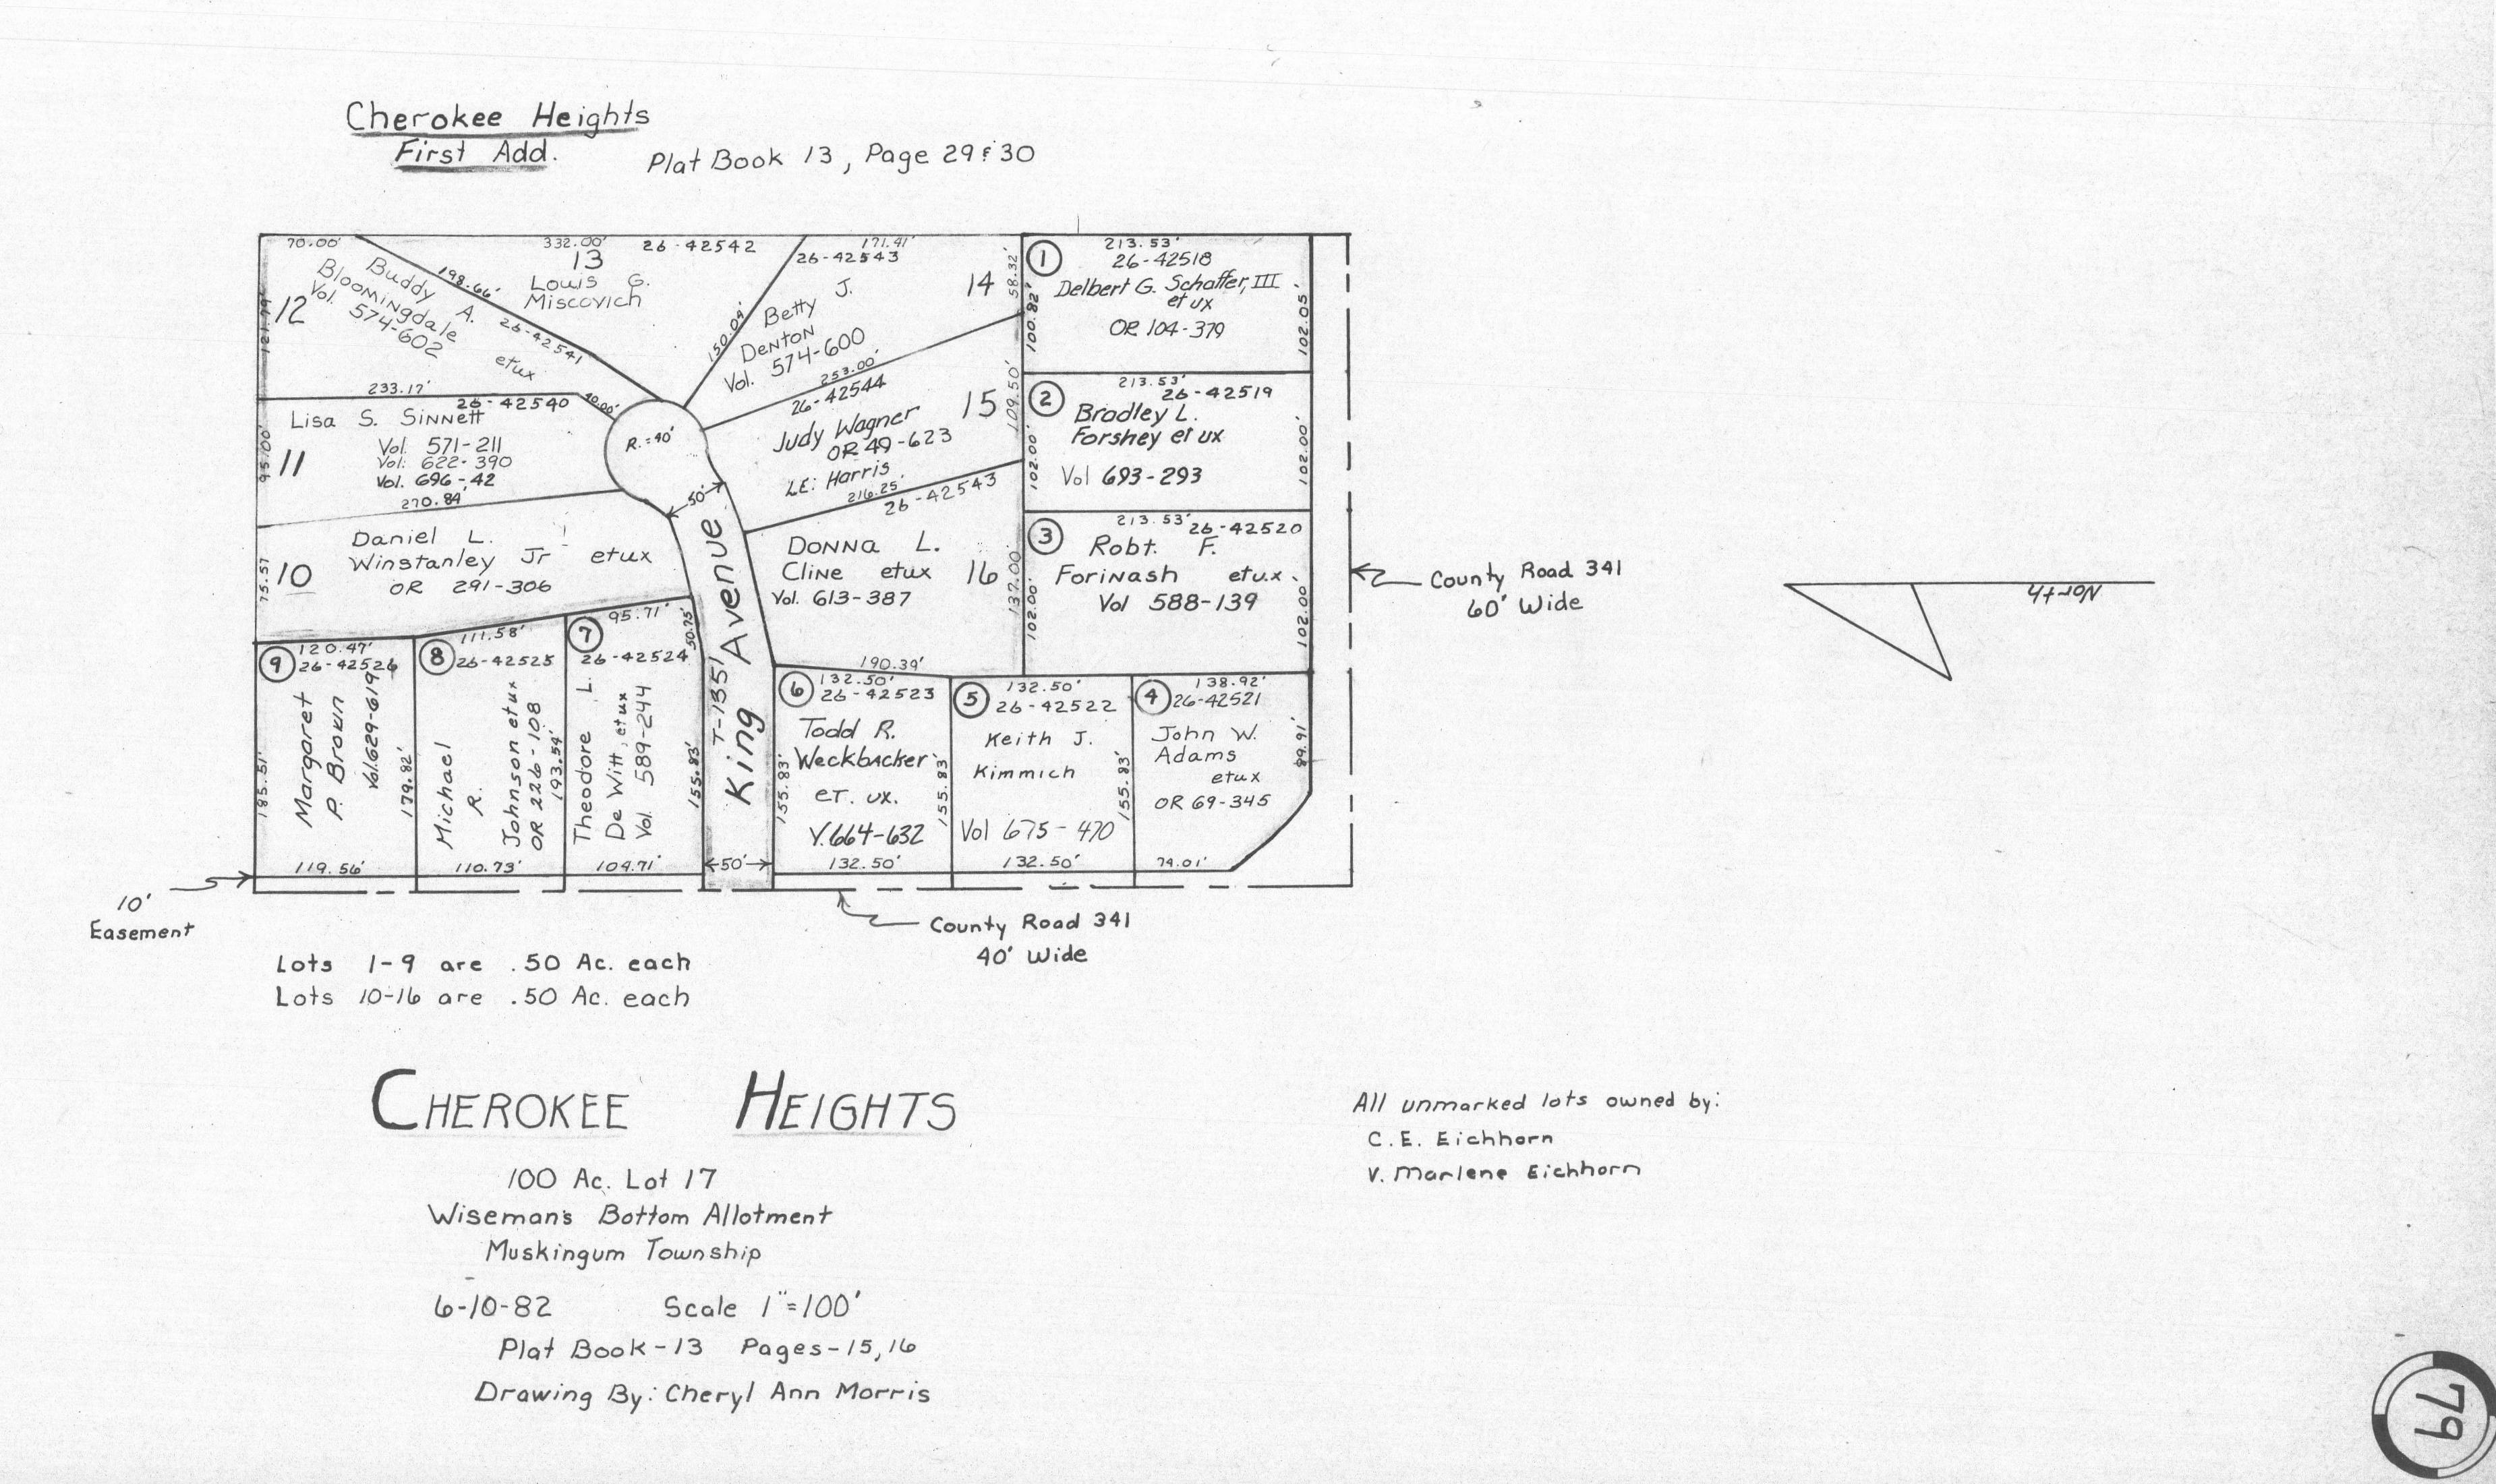 Cherokee Heights
First Add.
Plat Book 13, Page 29 & 30
70.00'
332.00'
26-42542
171.41'
26-42543
12
121.79'
Buddy A.
Bloomingdale
etux
Vol.
574-602
198.66'
26-42541
13
Louis G.
Miscovich
150.09'
Betty J.
Denton
Vol. 574-600
14
58.32'
253.00'
233.17'
40.00'
26-42540
Lisa S. Sinnett
Vol. 571-211
Vol. 622-390
Vol. 696-42
11
95.00'
270.84'
R.=40'
26-42544
Judy Wagner
OR 49-623
LE: Harris
15
109.50'
216.25'
26-42543
Daniel L.
Winstanley Jr etux
OR 291-306
10
75.57
50'
King Avenue
T-135
Donna L.
Cline etux
Vol. 613-387
16
137.00'
190.39'
1
213.53'
26-42518
Delbert G. Schaffer, III
et ux
OR 104-379
100.82'
102.05'
2
213.53'
26-42519
Bradley L.
Forshey et ux
Vol 693-293
102.00'
102.00'
3
213.53'
26-42520
Robt. F.
Forinash etux.
Vol 588-139
102.00'
102.00'
9
120.47'
26-42526
Margaret
P. Brown
Vol.629-619
185.51'
179.82'
119.56'
8
111.58'
26-42525
Michael
R.
Johnson etux
OR 226-108
193.54'
110.73'
7
95.71'
50.75'
26-42524
Theodore L.
De Witt, etux
Vol. 589-244
155.83'
104.71'
50'
6
132.50'
26-42523
Todd R.
Weckbacker
et. ux.
V.664-632
155.83'
155.83
132.50'
5
132.50'
26-42522
Keith J.
Kimmich
Vol 675-470
155.83'
132.50'
4
138.92'
26-42521
John W.
Adams
etux
OR 69-345
89.91'
74.01'
County Road 341
60' Wide
North
10'
Easement
County Road 341
40' Wide
Lots 1-9 are .50 Ac. each
Lots 10-16 are .50 Ac. each
Cherokee Heights
100 Ac. Lot 17
Wiseman's Bottom Allotment
Muskingum Township
6-10-82 Scale 1"=100'
Plat Book-13 Pages-15,16
Drawing By: Cheryl Ann Morris
All unmarked lots owned by:
C.E. Eichhorn
V. Marlene Eichhorn
79